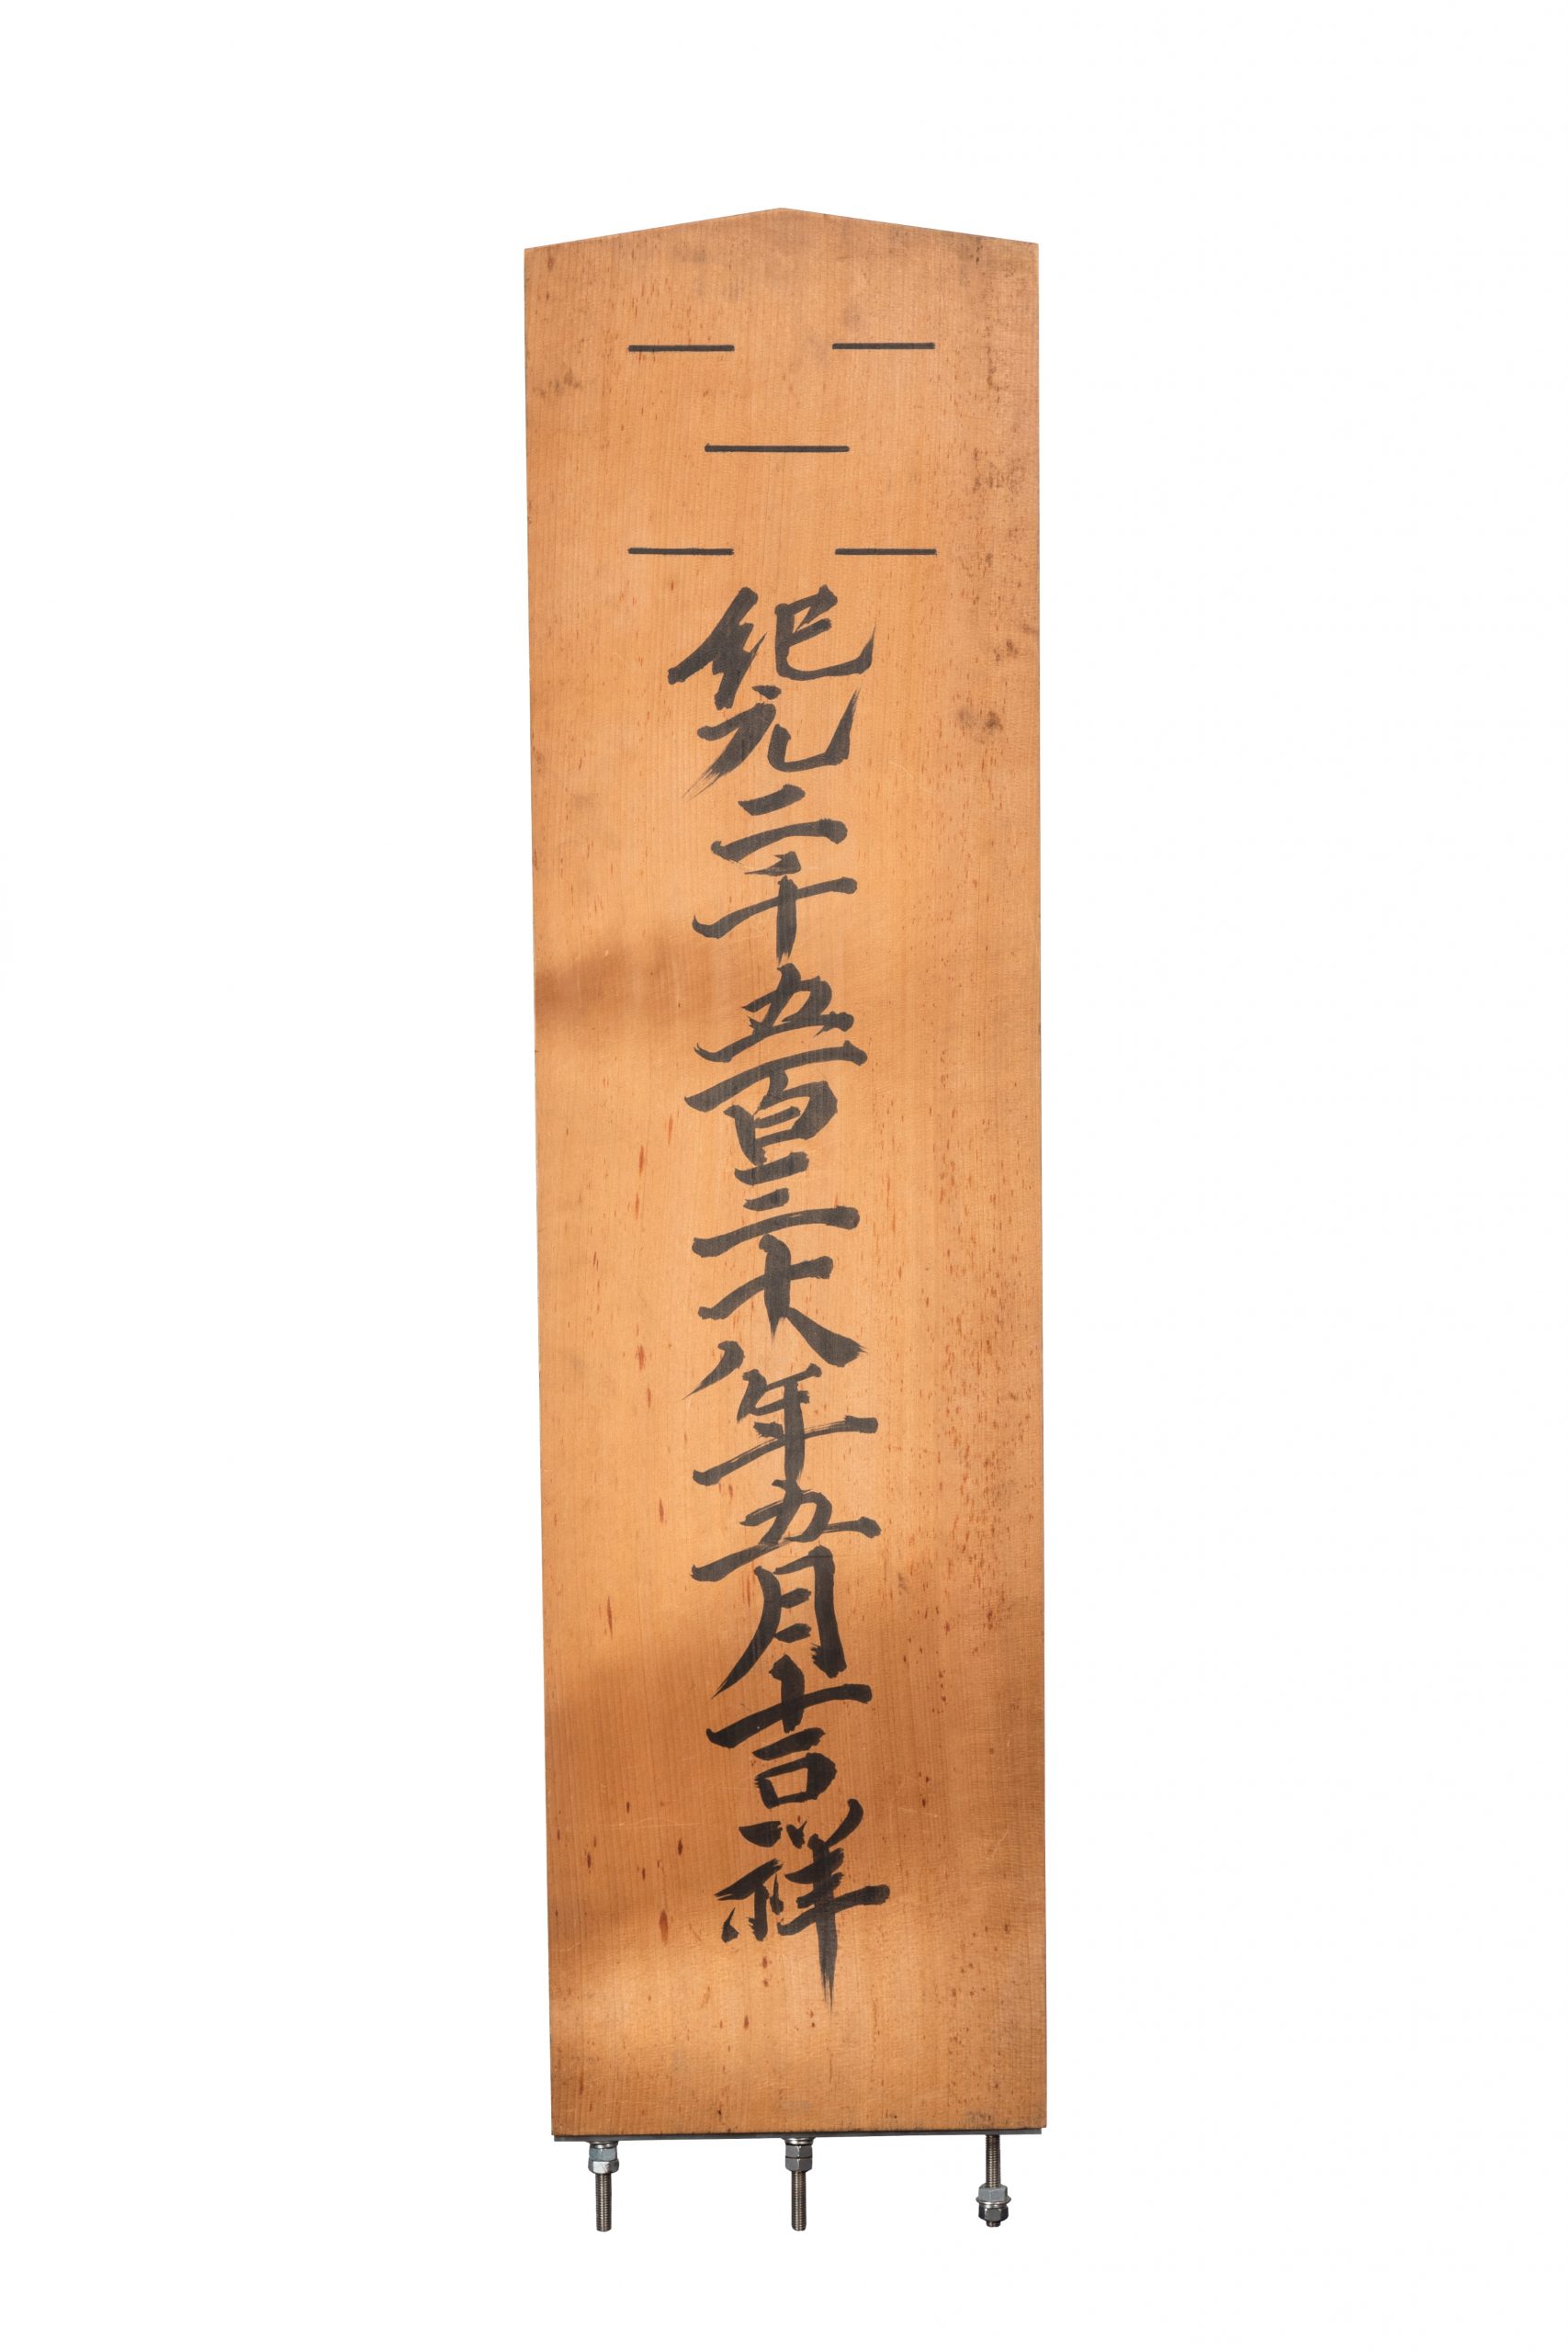 紀元二千五百三十八年五月吉祥